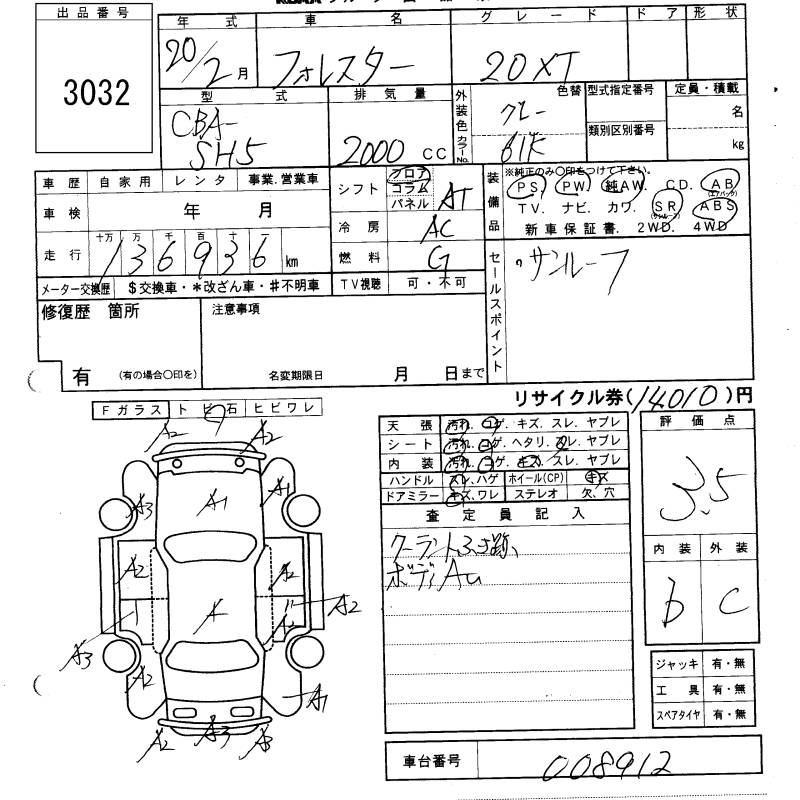 出品番号
3032
年式 車名 グレード ドア 形状
20/2月 フォレスター 20XT
型式 排気量 外装色 カラーNo. 色替 型式指定番号 定員・積載
CBA-SH5 2000cc グレー 61K 類別区別番号 名 kg
車歴 自家用 レンタ 事業.営業車
車検 年 月
走行 十万 万 千 百 十 一
136936km
メーター交換歴 $交換車・*改ざん車・#不明車
シフト フロア コラム パネル AT
冷房 AC
燃料 G
TV視聴 可・不可
装備品 ※純正のみ〇印をつけて下さい。
PS. PW. 純AW. C D. AB (エアバック)
TV. ナビ. カワ. SR (サンルーフ) ABS
新車保証書. 2WD. 4WD
セールスポイント
サンルーフ
修復歴 箇所
有 (有の場合〇印を)
注意事項
名変期限日 月 日まで
リサイクル券(14010)円
Fガラス トビ石 ヒビワレ
A2 A2
A3 A1 A1
A2 A2
A A2 A2
A3 A2 A1
A2 A3 A
天張 汚れ. コゲ. キズ. スレ. ヤブレ
シート 汚れ. コゲ. ヘタリ. スレ. ヤブレ
内装 汚れ. コゲ. キズ. スレ. ヤブレ
ハンドル スレ. ハゲ ホイール(CP) キズ
ドアミラー キズ. ワレ ステレオ 欠. 穴
査定員記入
クーラント
ボディ
評価点
3.5
内装 外装
b C
ジャッキ 有・無
工具 有・無
スペアタイヤ 有・無
車台番号
008912